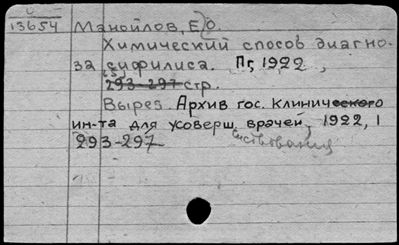 13654 Манойлов, Е.О.
Химический способ диагно-
за сифилиса. Пг, 1922,
(5) 293-297 стр.
Вырез. Архив гос. клинического
ин-та для усоверш. врачей, 1922, 1
293-297 ствования